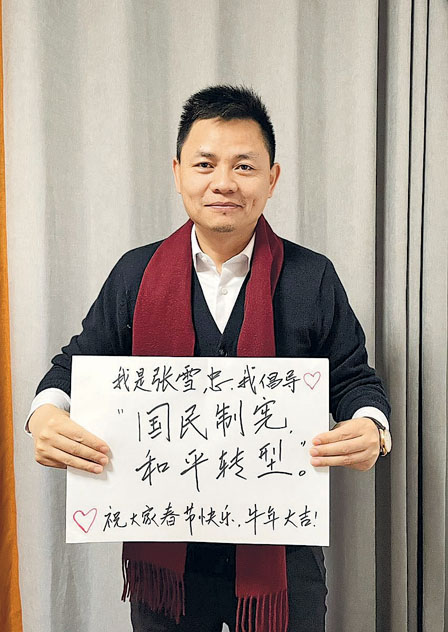 我是张雪忠，我倡导♡
“国民制宪，
和平转型。”
♡祝大家春节快乐，牛年大吉！